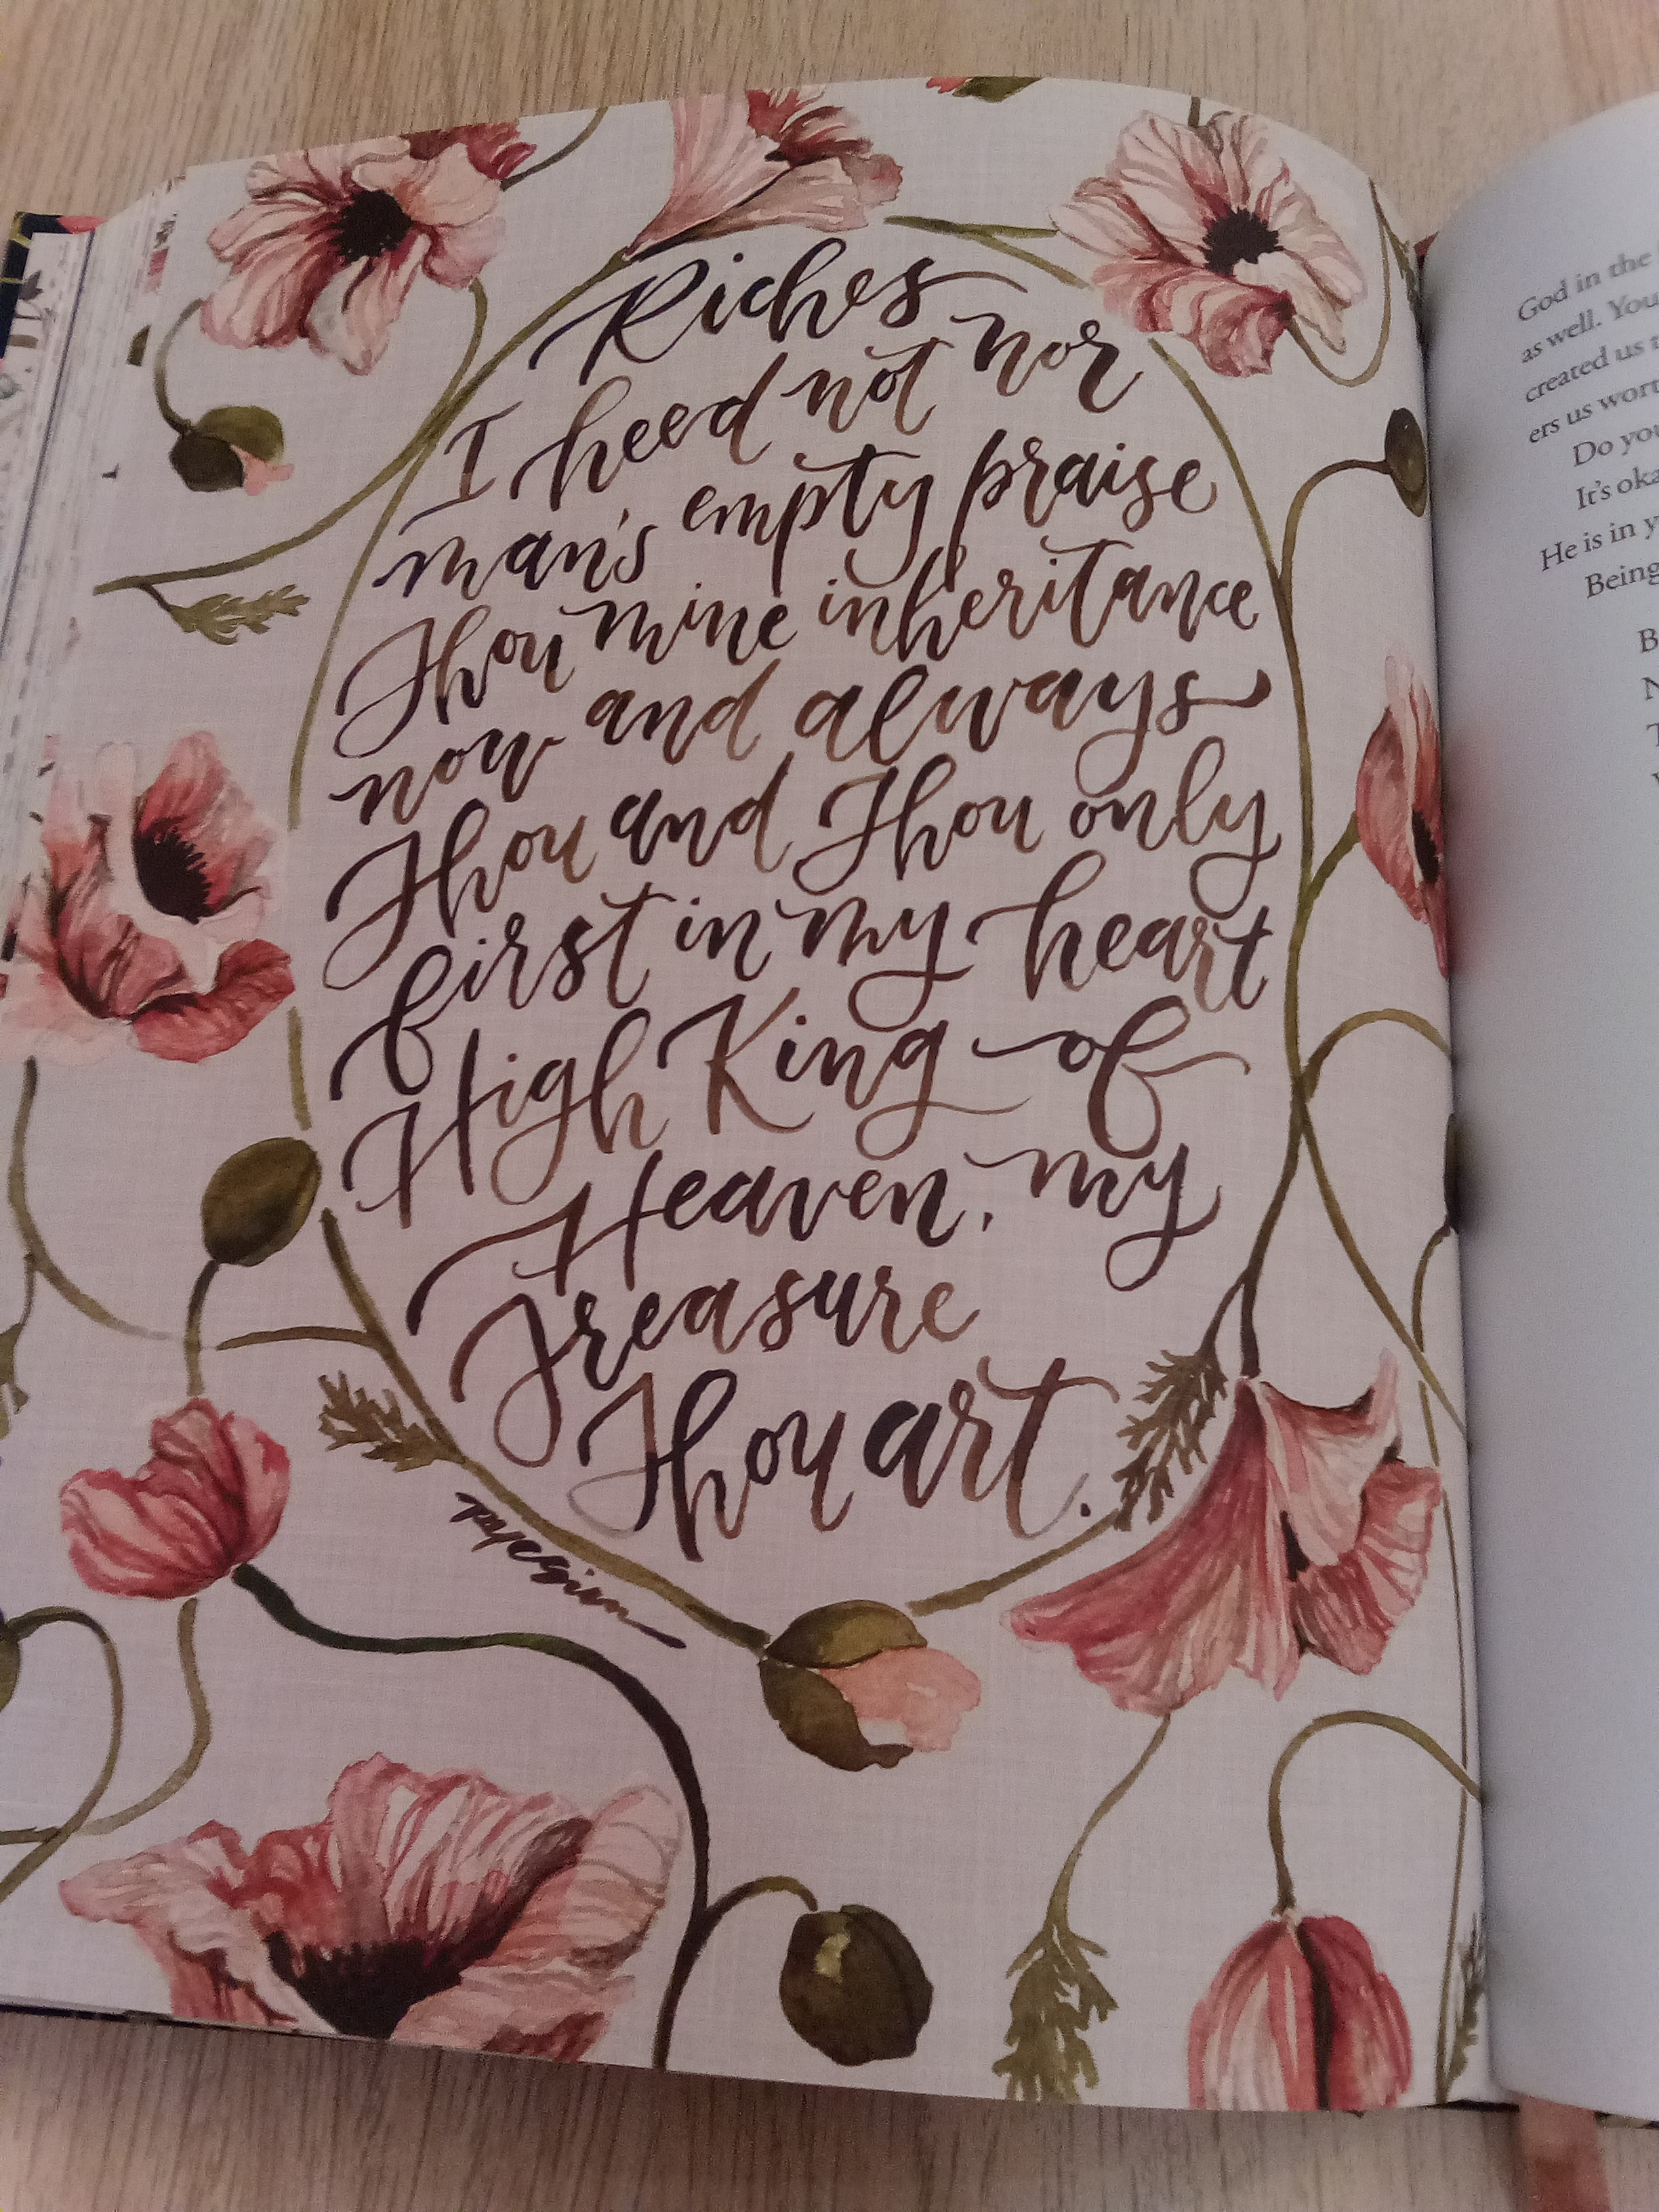 Riches
I heed not nor
man's empty praise
Thou mine inheritance
now and always
Thou and Thou only
first in my heart
High King of
Heaven, my
Treasure
Thou art.
God in the
as well. You
created us
ers us
Do you
It's
He is in
Being